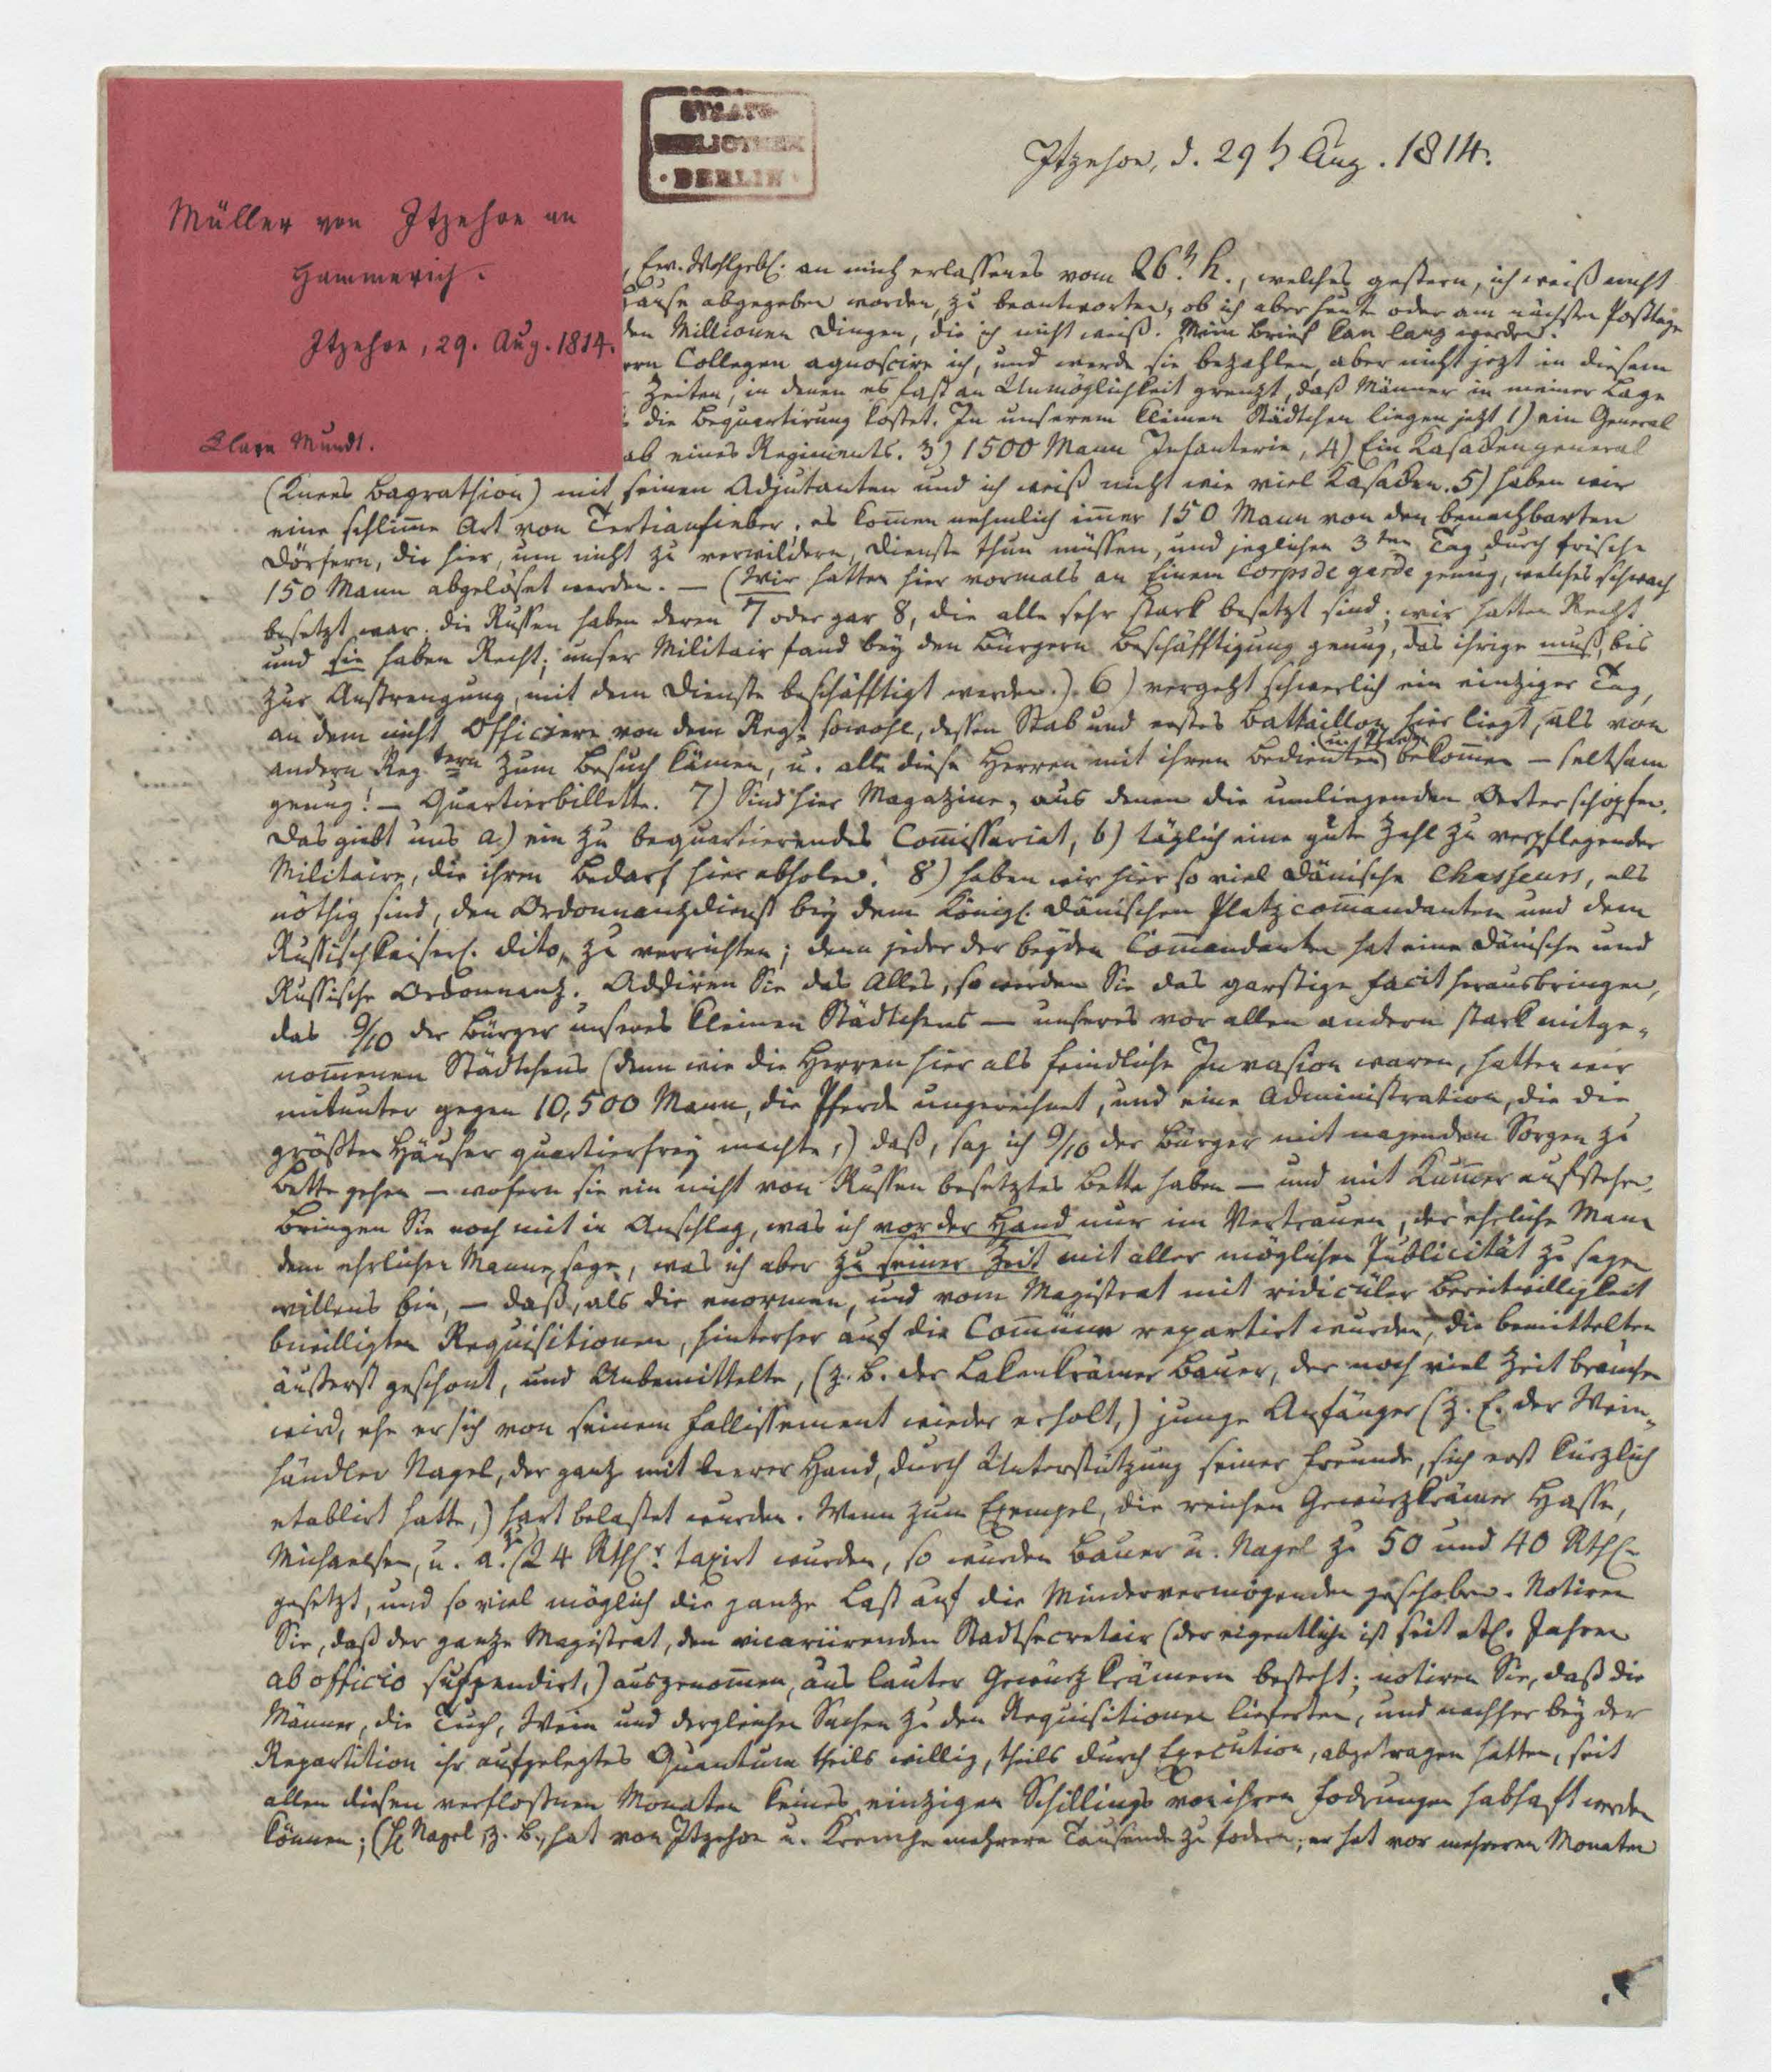 STAATS-
BIBLIOTHEK
· BERLIN ·
Itzehoe, d. 29 t. Aug. 1814.
Müller von Itzehoe an
Hammerich.
Itzehoe, 29. Aug. 1814.
Clara Mundt.
, Ew. Wohlgebl. an mich erlassenes vom 26. h., welches gestern, ich weiß nicht
Hause abgegeben worden, zu beantworten, ob ich aber heute oder am nächsten Posttage
den Millionen Dingen, die ich nicht weiß. Mein Brief kan lang werden.
rrn Collegen agnoscire ich, und werde sie bezahlen, aber nicht jezt in diesem
Zeiten, in denen es fast an Unmöglichkeit grenzt, daß Männer in meiner Lage
die Bequartirung kostet. In unserem kleinen Städtchen liegen jetzt 1) ein General
ab eines Regiments. 3) 1500 Mann Infanterie, 4) Ein Kasackengeneral
(Knees Bagrathion) mit seinen Adjutanten und ich weiß nicht wie viel Kasacken. 5) haben wir
eine schlim̅e Art von Tertianfieber, es kom̅en nehmlich im̅er 150 Mann von den benachbarten
Dörfern, die hier, um nicht zu verwildern, Dienste thun müssen, und jeglichen 3ten Tag durch frische
150 Mann abgelöset werden. — (Wir hatten hier vormals an Einem Corps de garde genug, welches schwach
besetzt war; die Russen haben deren 7 oder gar 8, die alle sehr stark besetzt sind; wir hatten Recht
und sie haben Recht; unser Militair fand bey den Bürgern Beschäfftigung genug, das ihrige muß, bis
zur Anstrengung, mit dem Dienste beschäfftigt werden.) 6) vergeht schwerlich ein einziger Tag,
an dem nicht Officiere von dem Regt. sowohl, dessen Stab und erstes Battaillon hier liegt, als von
andern Regtern zum Besuch kämen, u. alle diese Herren mit ihren Bedienten (u. Pferden) bekom̅en — seltsam
genug! — Quartierbillette. 7) Sind hier Magazine, aus denen die umliegenden Oerter schöpfen.
Das giebt uns a) ein zu bequartierendes Com̅issariat, b) täglich eine gute Zahl zu verpflegender
Militaire, die ihren Bedarf hier abholen. 8) haben wir hier so viel dänische Chasseurs, als
nöthig sind, den Ordonnanzdienst bey dem Königl. dänischen Platzcom̅andanten und dem
Russischkaiserl. dito, zu verrichten; denn jeder der beyden Com̅andanten hat eine dänische und
Russische Ordonnanz. Addiren Sie das Alles, so werden Sie das garstige Facit herausbringen,
das 9/10 der Bürger unseres kleinen Städtchens — unseres vor allen andern stark mitge-
nom̅enen Städtchens (denn wie die Herren hier als feindliche Invasion waren, hatten wir
mitunter gegen 10,500 Mann, die Pferde ungerechnet, und eine Administration, die die
größten Häuser quartierfrey machte,) daß, sag ich 9/10 der Bürger mit nagenden Sorgen zu
Bette gehen — wofern sie ein nicht von Russen besetztes Bette haben — und mit Kum̅er aufstehen.
Bringen Sie noch mit in Anschlag, was ich vor der Hand nur im Vertrauen, der ehrliche Mann
dem ehrlichen Manne, sage, was ich aber zu seiner Zeit mit aller möglichen Publicität zu sagen
willens bin, — daß, als die enormen, und vom Magistrat mit ridicüler Bereitwilligkeit
bewilligten Requisitionen, hinterher auf die Com̅üne repartirt wurden, die Bemittelten
äußerst geschont, und Unbemittelte, (z. B. der Lakenkrämer Bauer, der noch viel Zeit brauchen
wird, ehe er sich von seinem Fallissement wieder erholt,) junge Anfänger (z. E. der Wein-
händler Nagel, der ganz mit leerer Hand, durch Unterstützung seiner Freunde, sich erst kürzlich
etablirt hatte,) hart belastet wurden. Wenn zum Exempel, die reichen Gewürzkrämer Hasse,
Michaelsen, u. a. zu 24 Rthlr. taxirt wurden, so wurden Bauer u. Nagel zu 50 und 40 Rthlr
gesetzt, und so viel möglich die ganze Last auf die Mindervermögenden geschoben. Notiren
Sie, daß der ganze Magistrat, den vicariirenden Stadtsecretair (der eigentliche ist seit etl. Jahren
ab officio suspendirt,) ausgenom̅en, aus lauter Gewürzkrämern besteht; notiren Sie, daß die
Männer, die Tuch, Wein und dergleichen Sachen zu den Requisitionen lieferten, und nachher bey der
Repartition ihr aufgelegtes Quantum theils willig, theils durch Execution, abgetragen hatten, seit
allen diesen verfloßnen Monaten keines einzigen Schillings von ihren Foderungen habhaft werden
können; (H. Nagel z. B., hat von Itzehoe u. Krempe mehrere Tausende zu fodern; er hat vor mehreren Monaten